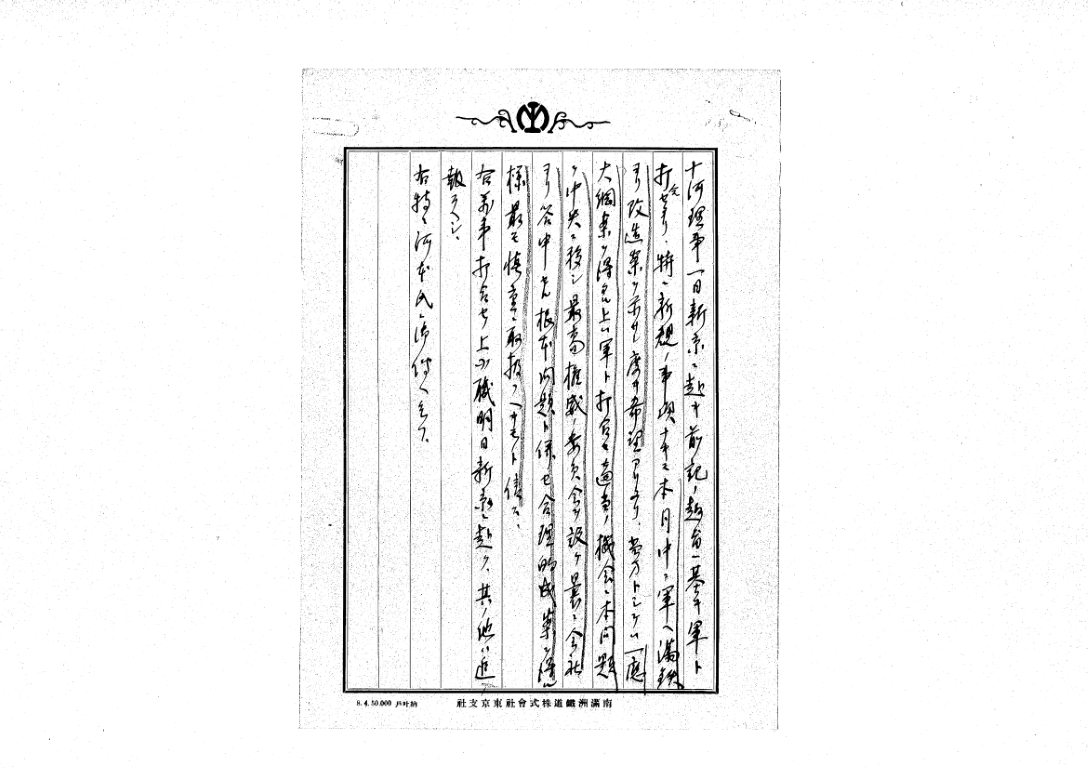 十河理事一日新京ニ赴キ前記ノ趣旨ニ基キ軍ト
打合セタリ、特ニ新規ノ事項ナキモ本月中ニ軍ヘ満鉄
ヨリ改造案ヲ示サレ度キ希望アリタリ、当方トシテハ一応
大綱案ヲ得タル上ハ軍ト打合セ適当ノ機会ニ本問題
ヲ中央ニ移シ最高権威ノ委員会ヲ設ケ曩ニ会社
ヨリ答申セル根本問題ト併セ合理的成案ヲ得ル
様最モ慎重ニ取扱フヘキモノト信ス、
右万事打合セノ上小職明日新京ニ赴ク、其ノ他ハ追テ
報スヘシ、
右特ニ河本氏ニ御伝ヘ乞フ
南滿洲鐵道株式會社東京支社
8.4.50.000